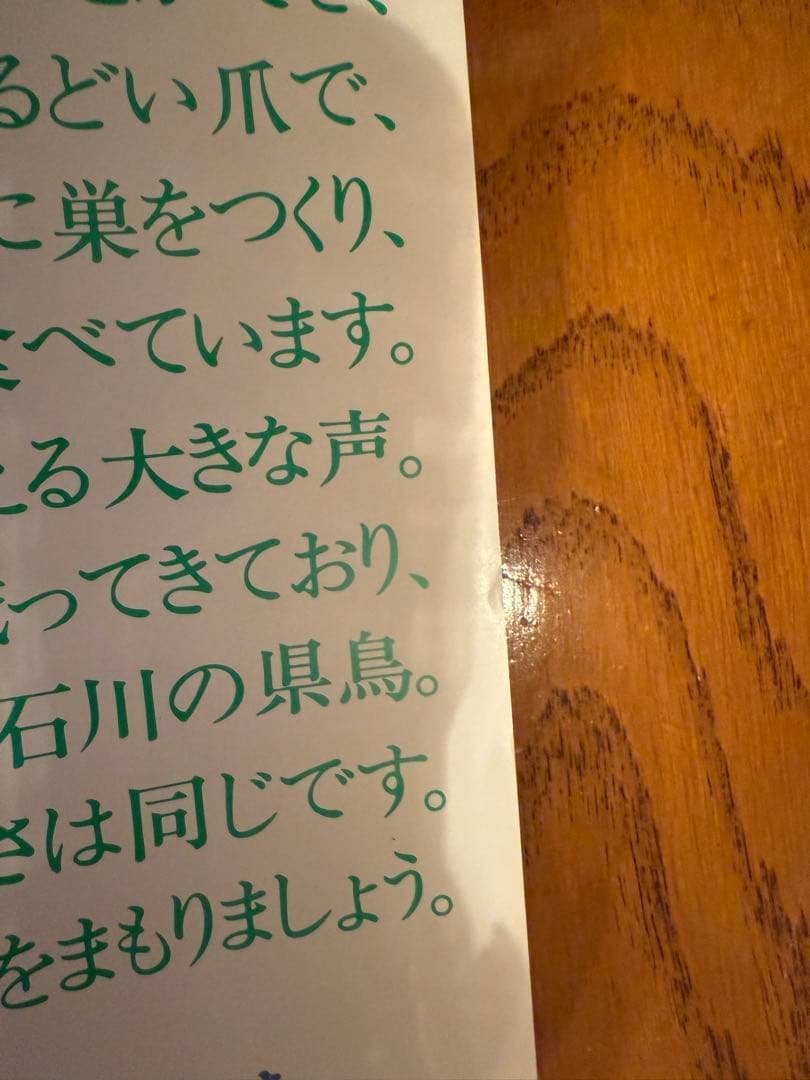 るどい爪で、
に巣をつくり、
べています。
る大きな声。
ってきており、
石川の県鳥。
さは同じです。
をまもりましょう。